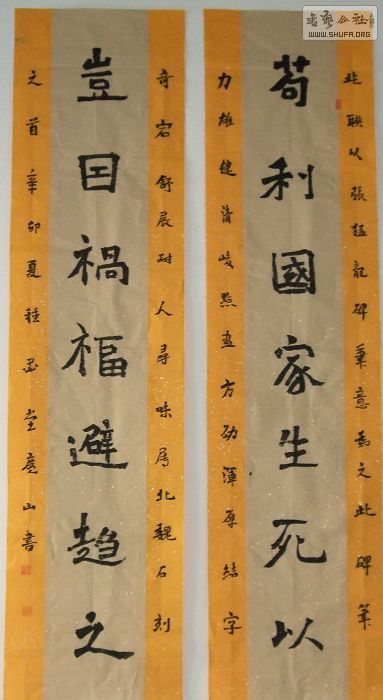 苟利國家生死以
豈因禍福避趨之
此聯以張猛龍碑筆意為之此碑筆
力雄健清峻點畫方勁渾厚結字
奇宕舒展耐人尋味属北魏石刻
之首辛卯夏種堂慶山書
書藝公社
WWW.SHUFA.ORG